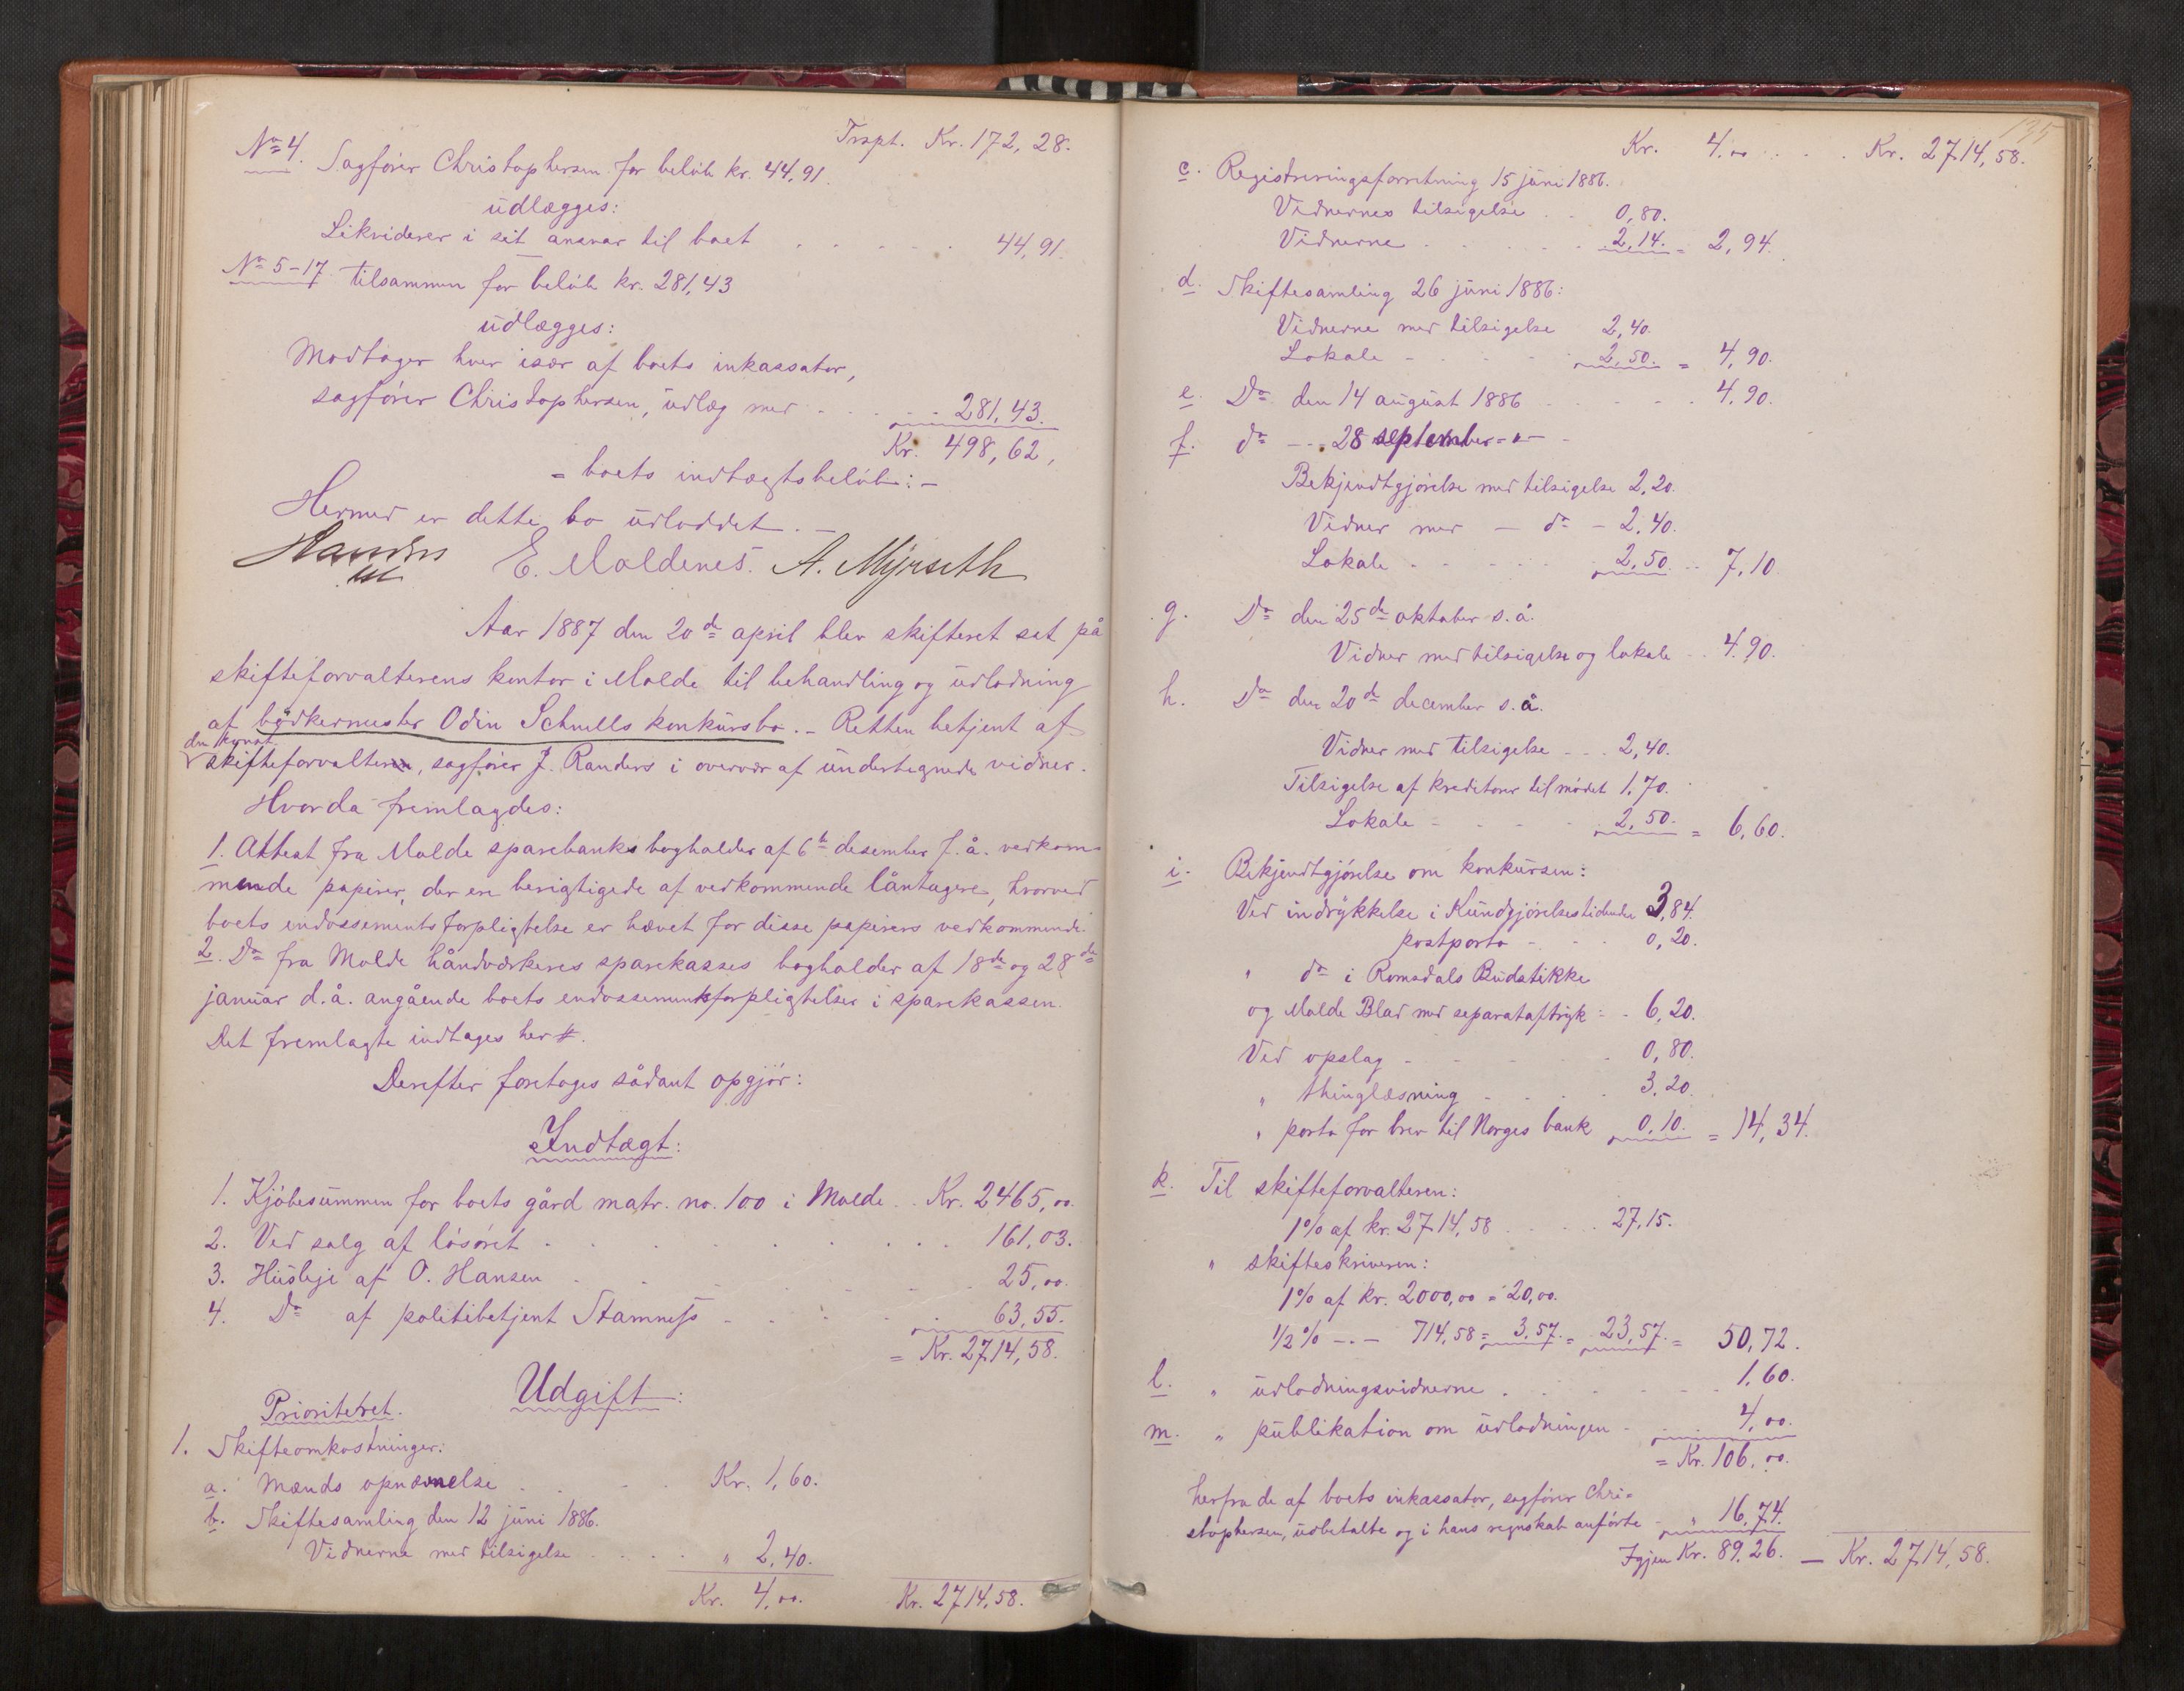 Trspt. Kr. 172,28.
No 4. Sagfører Christophersen for beløb kr. 44,91.
udlægges:
Likviderer i sit ansvar til boet . . . . . 44,91.
No 5-17 tilsammen for beløb kr. 281,43
udlægges:
Modtager hver især af boets inkassator,
sagfører Christophersen, udlæg med - . . . - - 281,43.
Kr. 498,62,
= boets indtægtsbeløb: -
Hermed er dette bo udloddet. -
Randers E. Moldenes. A. Myrseth
Aar 1887 den 20de april blev skifteret sat på
skifteforvalterens kontor i Molde til behandling og udlodning
af bødkermester Odin Schnells konkursbo. - Retten betjent af
den kgnst.
skifteforvalteren, sagfører J. Randers i overvær af undertegnede vidner.
Hvorda fremlagdes:
1. Attest fra Molde sparebanks bogholder af 6te desember f. å. vedkom-
mende papirer, der ere berigtigede af vedkommende låntagere, hvorved
boets endossementsforpligtelse er hævet for disse papirers vedkommende.
2. Do fra Molde håndværkeres sparekasses bogholder af 18de og 28de
januar d. å. angående boets endossementsforpligtelser i sparekassen.
Det fremlagte indtages her #.
Derefter foretages sådant opgjør:
Indtægt:
1. Kjøbesummen for boets gård matr. no. 100 i Molde . . Kr. 2465,00.
2. Ved salg af løsøret . . . . . . . . . 161,03.
3. Husleje af O. Hansen . . . . . 25,00.
4. Do af politibetjent Stamness - . . . . 63,55.
= Kr. 2714,58.
Udgift:
Prioritetet.
1. Skifteomkostninger:
a. Mænds opnævnelse . . . . Kr. 1,60.
b. Skiftesamling den 12 juni 1886.
Vidnerne med tilsigelse . . . . " 2,40.
Kr. 4,00. Kr. 2714,58.
135
Kr. 4.00 . . . . Kr. 2714,58.
c. Registreringsforretning 15 juni 1886.
Vidnernes tilsigelse . . 0,80.
Vidnerne . . . . . 2,14. = 2,94.
d. Skiftesamling 26 juni 1886:
Vidnerne med tilsigelse 2,40.
Lokale - . . . . 2,50. = 4,90.
e. Do den 14 august 1886 . . . . . 4,90.
f. do - - . 28 september - " -
Bekjendtgjørelse med tilsigelse 2,20.
Vidner med - do - 2,40.
Lokale . . . . . 2,50. . . 7,10.
g. Do den 25de oktober s. å.
Vidner med tilsigelse og lokale . . 4,90.
h. Do den 20de december s. å.
Vidner med tilsigelse - . . 2,40.
Tilsigelse af kreditorer til mødet 1,70.
Lokale - . . . . 2,50. = 6,60.
i. Bekjendtgjørelse om konkursen:
Ved indrykkelse i Kundgjørelsestidende 3,84.
postporto - . . . 0,20.
" do i Romsdals Budstikke
og Molde Blad med separataftryk = . 6,20.
Ved opslag - . . . . 0,80.
" thinglæsning - . . . 3,20.
" porto for brev til Norges bank 0,10. = 14,34.
k. Til skifteforvalteren:
1% af kr. 2714,58 . . . . 27,15.
" skifteskriveren:
1% af kr. 2000,00 = 20,00.
1/2% - . - 714,58 = 3,57. = 23,57. = 50,72.
l. " udlodningsvidnerne . . . . . . 1,60.
m. " publikation om udlodningen - . . 4,00.
= Kr. 106,00.
herfra de af boets inkassator, sagfører Chri-
stophersen, udbetalte og i hans regnskab anførte - " 16,74.
Igjen Kr. 89,26. - Kr. 2714,58.